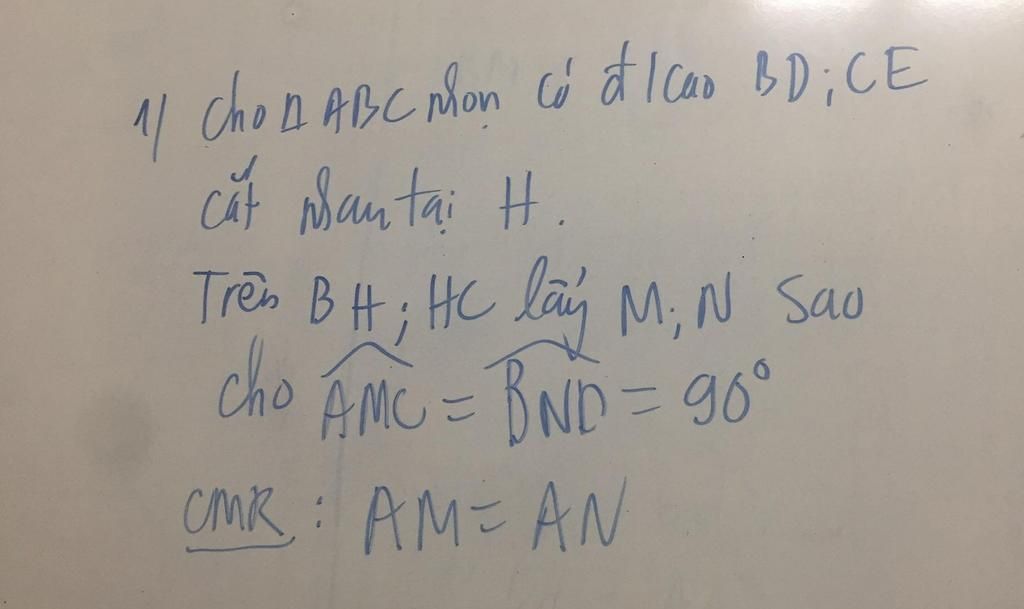 1/ Cho Δ ABC nhọn có đ/cao BD; CE
cắt nhau tại H.
Trên BH; HC lấy M; N sao
cho \widehat{AMC} = \widehat{BND} = 90°
CMR : AM = AN